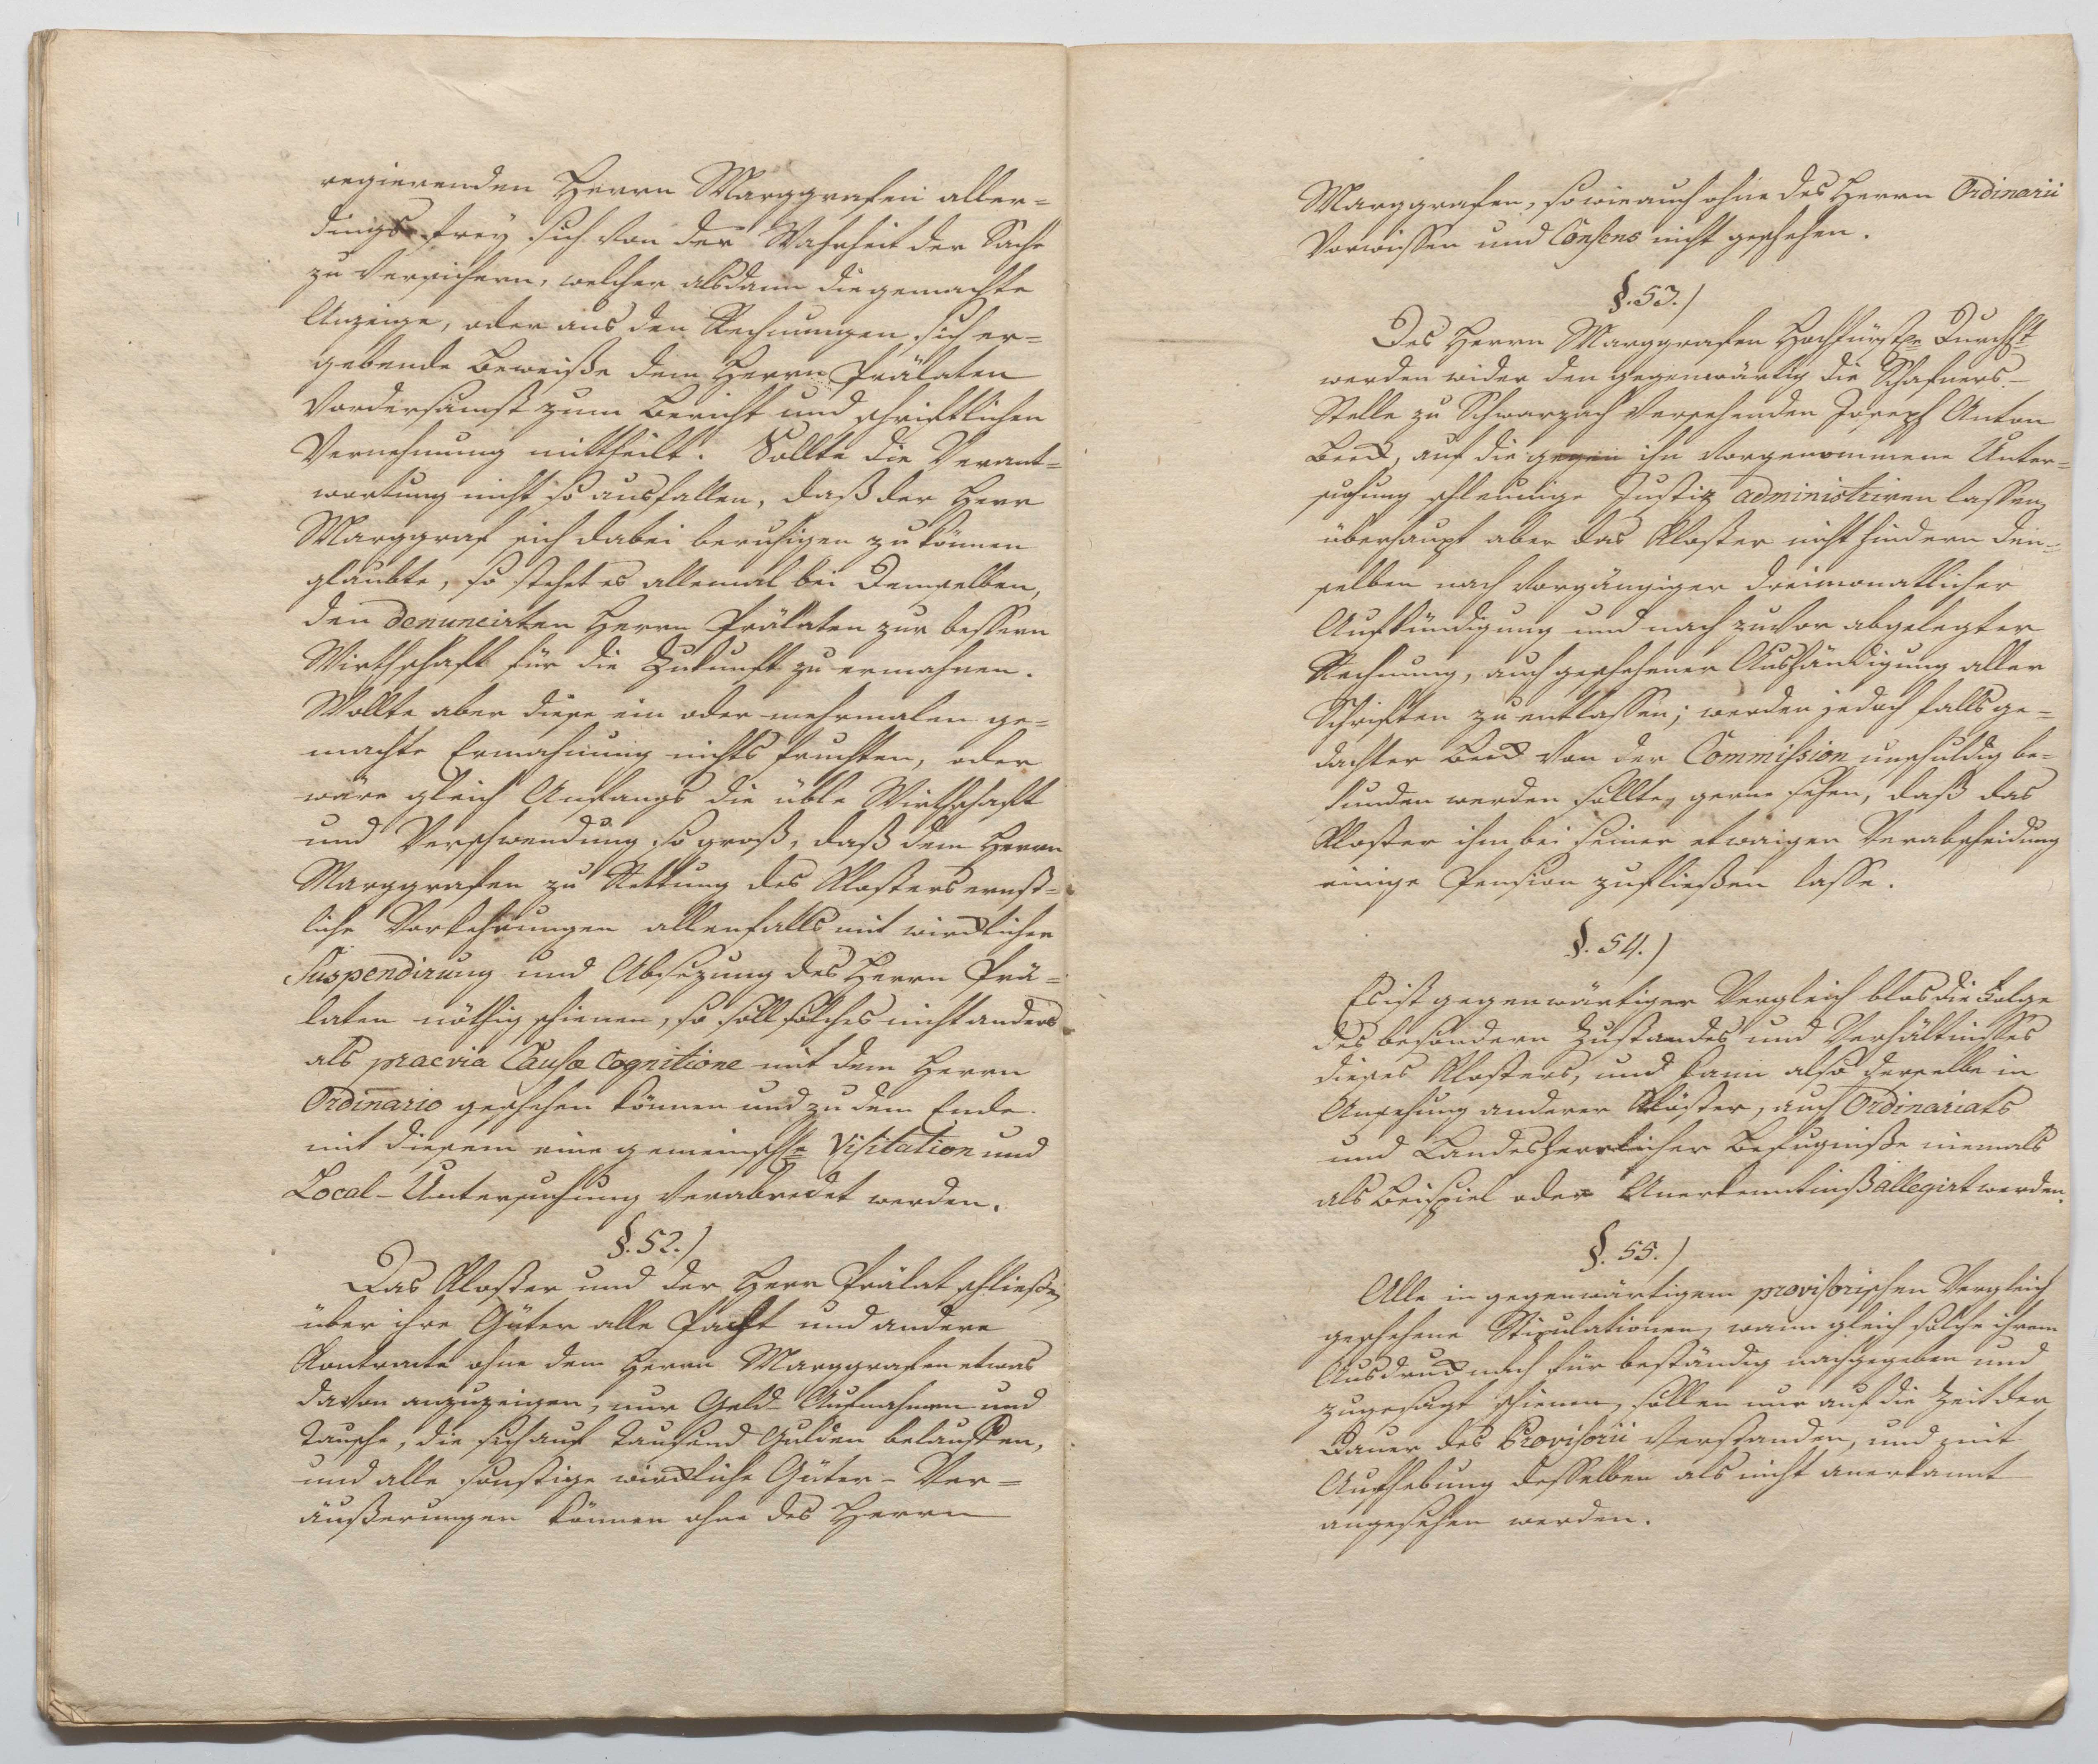 regierenden Herrn Marggrafen aller-
dings frey sich von der Wahrheit der Sache
zu versichern, welcher alsdann die gemachte
Anzeige, oder aus den Rechnungen sich er-
gebende Beweiße dem Herrn Prälaten
vordersamst zum Bericht und schriftlichen
Vernehmung mittheilt. Sollte die Verant-
wortung nicht so ausfallen, daß der Herr
Marggraf sich dabei beruhigen zu können
glaubte, so stehet es allemal bei Demselben,
den denuncirten Herrn Prälaten zur bessern
Wirthschaft für die Zukunft zu ermahnen.
Wollte aber diese ein oder mehrmalen ge-
machte Ermahnung nichts fruchten, oder
wäre gleich Anfangs die üble Wirthschaft
und Verschwendung so groß, daß dem Herrn
Marggrafen zu Rettung des Klosters ernst-
liche Vorkehrungen allenfalls mit wircklicher
Suspendirung und Absezung des Herrn Prä-
laten nöthig schienen, so soll solches nicht anders
als praevia Causæ Cognitione mit dem Herrn
Ordinario geschehen können und zu dem Ende
mit diesem eine gemeinschle Visitation und
Local-Untersuchung verabredet werden.
§. 52.)
Das Kloster und der Herr Prälat schließen
über ihre Güter alle Pacht und andere
Kontracte ohne dem Herrn Marggrafen etwas
davon anzuzeigen, nur Geld-Aufnahmen und
Tausche, die sich auf tausend Gulden belauffen,
und alle sonstige wirckliche Güter-Ver-
äußerungen können ohne des Herrn
Marggrafen, so wie auch ohne des Herrn Ordinarii
Vorwissen und Consens nicht geschehen.
§. 53.)
Des Herrn Marggrafen Hochfürstle Durchlt
werden wider den gegenwärtig die Schafners-
Stelle zu Schwarzach versehenden Joseph Anton
Beck, auf die gegen ihn vorgenommene Unter-
suchung schleunige Justiz administriren lassen,
überhaupt aber das Kloster nicht hindern den-
selben nach vorgängiger dreimonatlicher
Aufkündigung und nach zuvor abgelegter
Rechnung, auch geschehener Aushändigung aller
Schriften zu entlassen; werden jedoch falls ge-
dachter Beck von der Commission unschuldig be-
funden werden sollte, gerne sehen, daß das
Kloster ihm bei seiner etwaigen Verabscheidung
einige Pension zufließen lasse.
§. 54.)
Es ist gegenwärtiger Vergleich blos die Folge
des besondern Zustandes und Verhältnisses
dieses Klosters, und kann also derselbe in
Ansehung anderer Klöster, auch Ordinariats
und Landesherrlicher Befugniße niemals
als Beispiel oder Anerkenntniß allegirt werden.
§. 55.)
Alle in gegenwärtigem provisorischen Vergleich
geschehene Stipulationen, wann gleich solche ihrem
Ausdruck nach für beständig nachgegeben und
zugesagt schienen, sollen nur auf die Zeit der
Dauer des Provisorii verstanden, und mit
Aufhebung desselben als nicht anerkannt
angesehen werden.